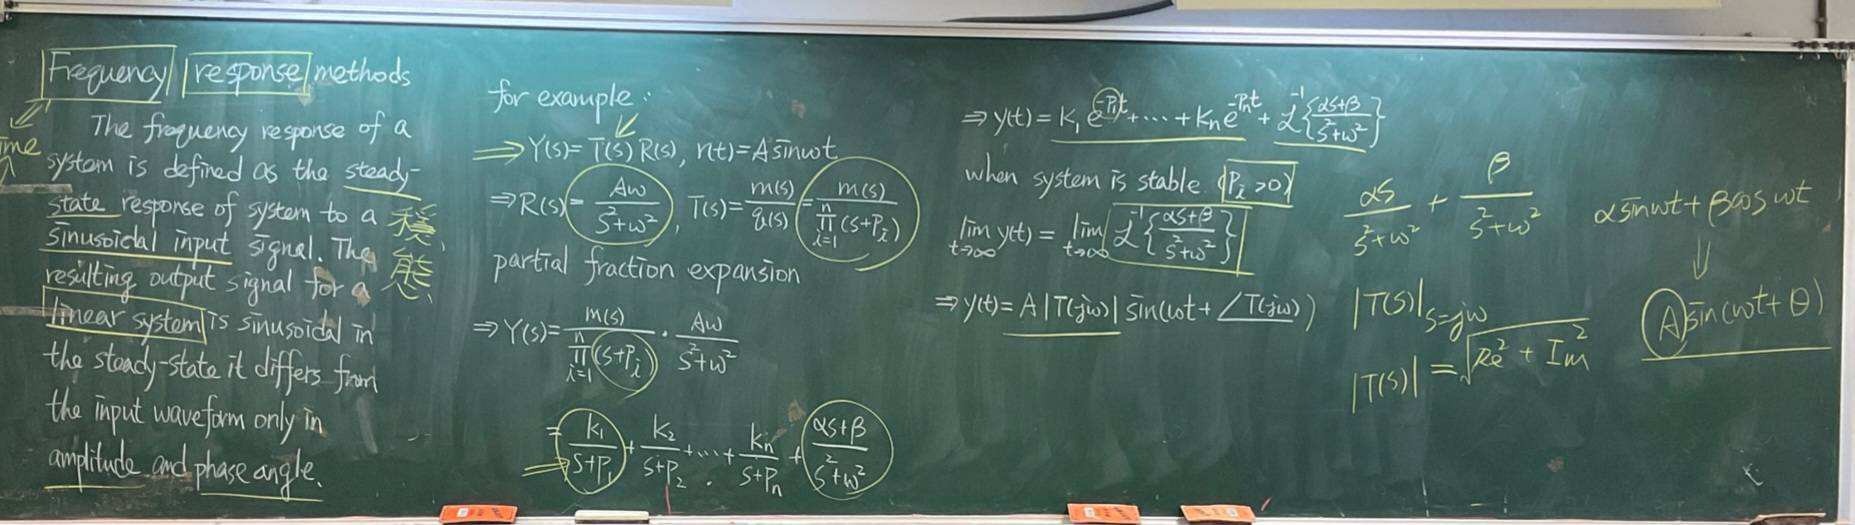 Frequency response methods
The frequency response of a
system is defined as the steady-
state response of system to a
sinusoidal input signal. The
resulting output signal for a
linear system is sinusoidal in
the steady-state it differs from
the input waveform only in
amplitude and phase angle.
穩
態
for example:
⇒ Y(s)= T(s) R(s), r(t)=A sinωt
⇒ R(s)= Aω/(s²+ω²), T(s)= m(s)/q(s) = m(s)/∏ⁿᵢ₌₁(s+Pᵢ)
partial fraction expansion
⇒ Y(s)= m(s)/∏ⁿᵢ₌₁(s+Pᵢ) · Aω/(s²+ω²)
= k₁/(s+P₁) + k₂/(s+P₂) + ... + kₙ/(s+Pₙ) + (αs+β)/(s²+ω²)
⇒ y(t) = k₁e^(-P₁t) + ... + kₙe^(-Pₙt) + ℒ⁻¹{(αs+β)/(s²+ω²)}
when system is stable (Pᵢ >0)
lim t→∞ y(t) = lim t→∞ ℒ⁻¹{(αs+β)/(s²+ω²)}
⇒ y(t) = A |T(jω)| sin(ωt + ∠T(jω))
αs/(s²+ω²) + β/(s²+ω²)
|T(s)| s=jω
|T(s)| = √(Re² + Im²)
αsinωt + βcosωt
⇓
A sin(ωt + θ)